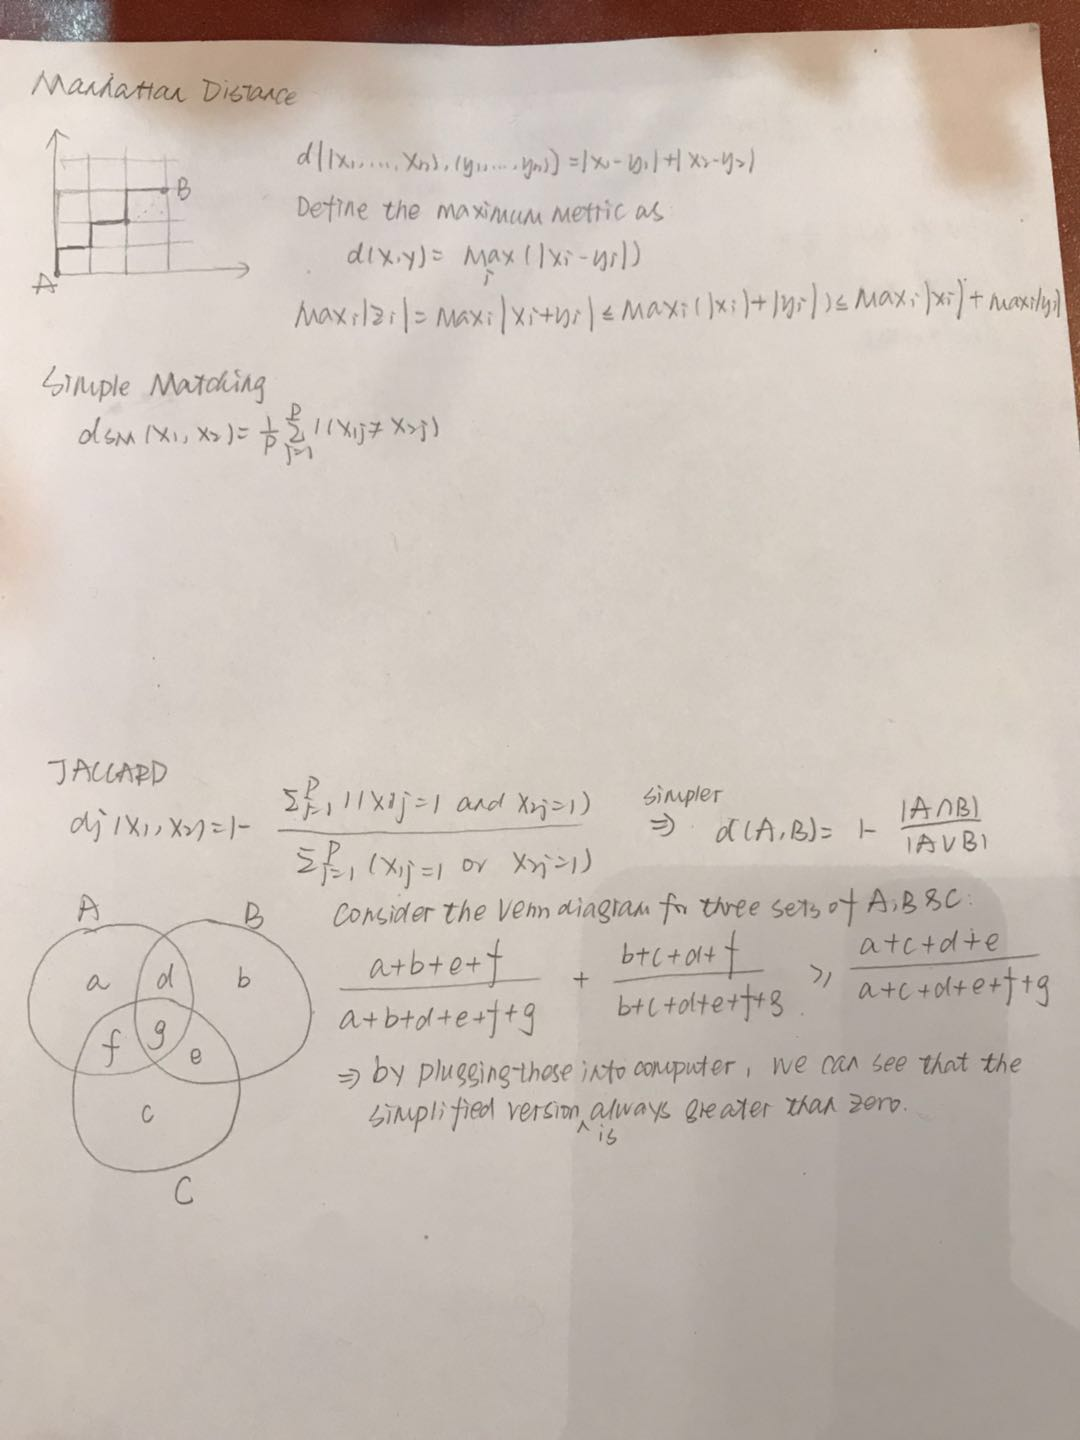 Manhattan Distance
B
A
d((x₁,...,xₙ),(y₁,...,yₙ))=|x₁-y₁|+|x₂-y₂|
Define the maximum metric as
d(x,y)= max_i (|xi-yi|)
maxi|zi|=maxi|xi+yi|≤maxi(|xi|+|yi|)≤maxi|xi|+maxi|yi|
Simple Matching
dSM(x₁,x₂)=1/p Σ_{j=1}^{p} I(x₁j≠x₂j)
JACCARD
dj(x₁,x₂)=1- Σ_{j=1}^{p} I(x₁j=1 and x₂j=1) / Σ_{j=1}^{p} (x₁j=1 or x₂j=1) simpler ⇒ d(A,B)= 1- |A∩B| / |A∪B|
A
B
a d b
f g e
c
C
Consider the Venn diagram for three sets of A,B&C:
(a+b+e+f)/(a+b+d+e+f+g) + (b+c+d+f)/(b+c+d+e+f+g) ≥ (a+c+d+e)/(a+c+d+e+f+g)
⇒ by plugging these into computer, we can see that the
simplified version is always greater than zero.